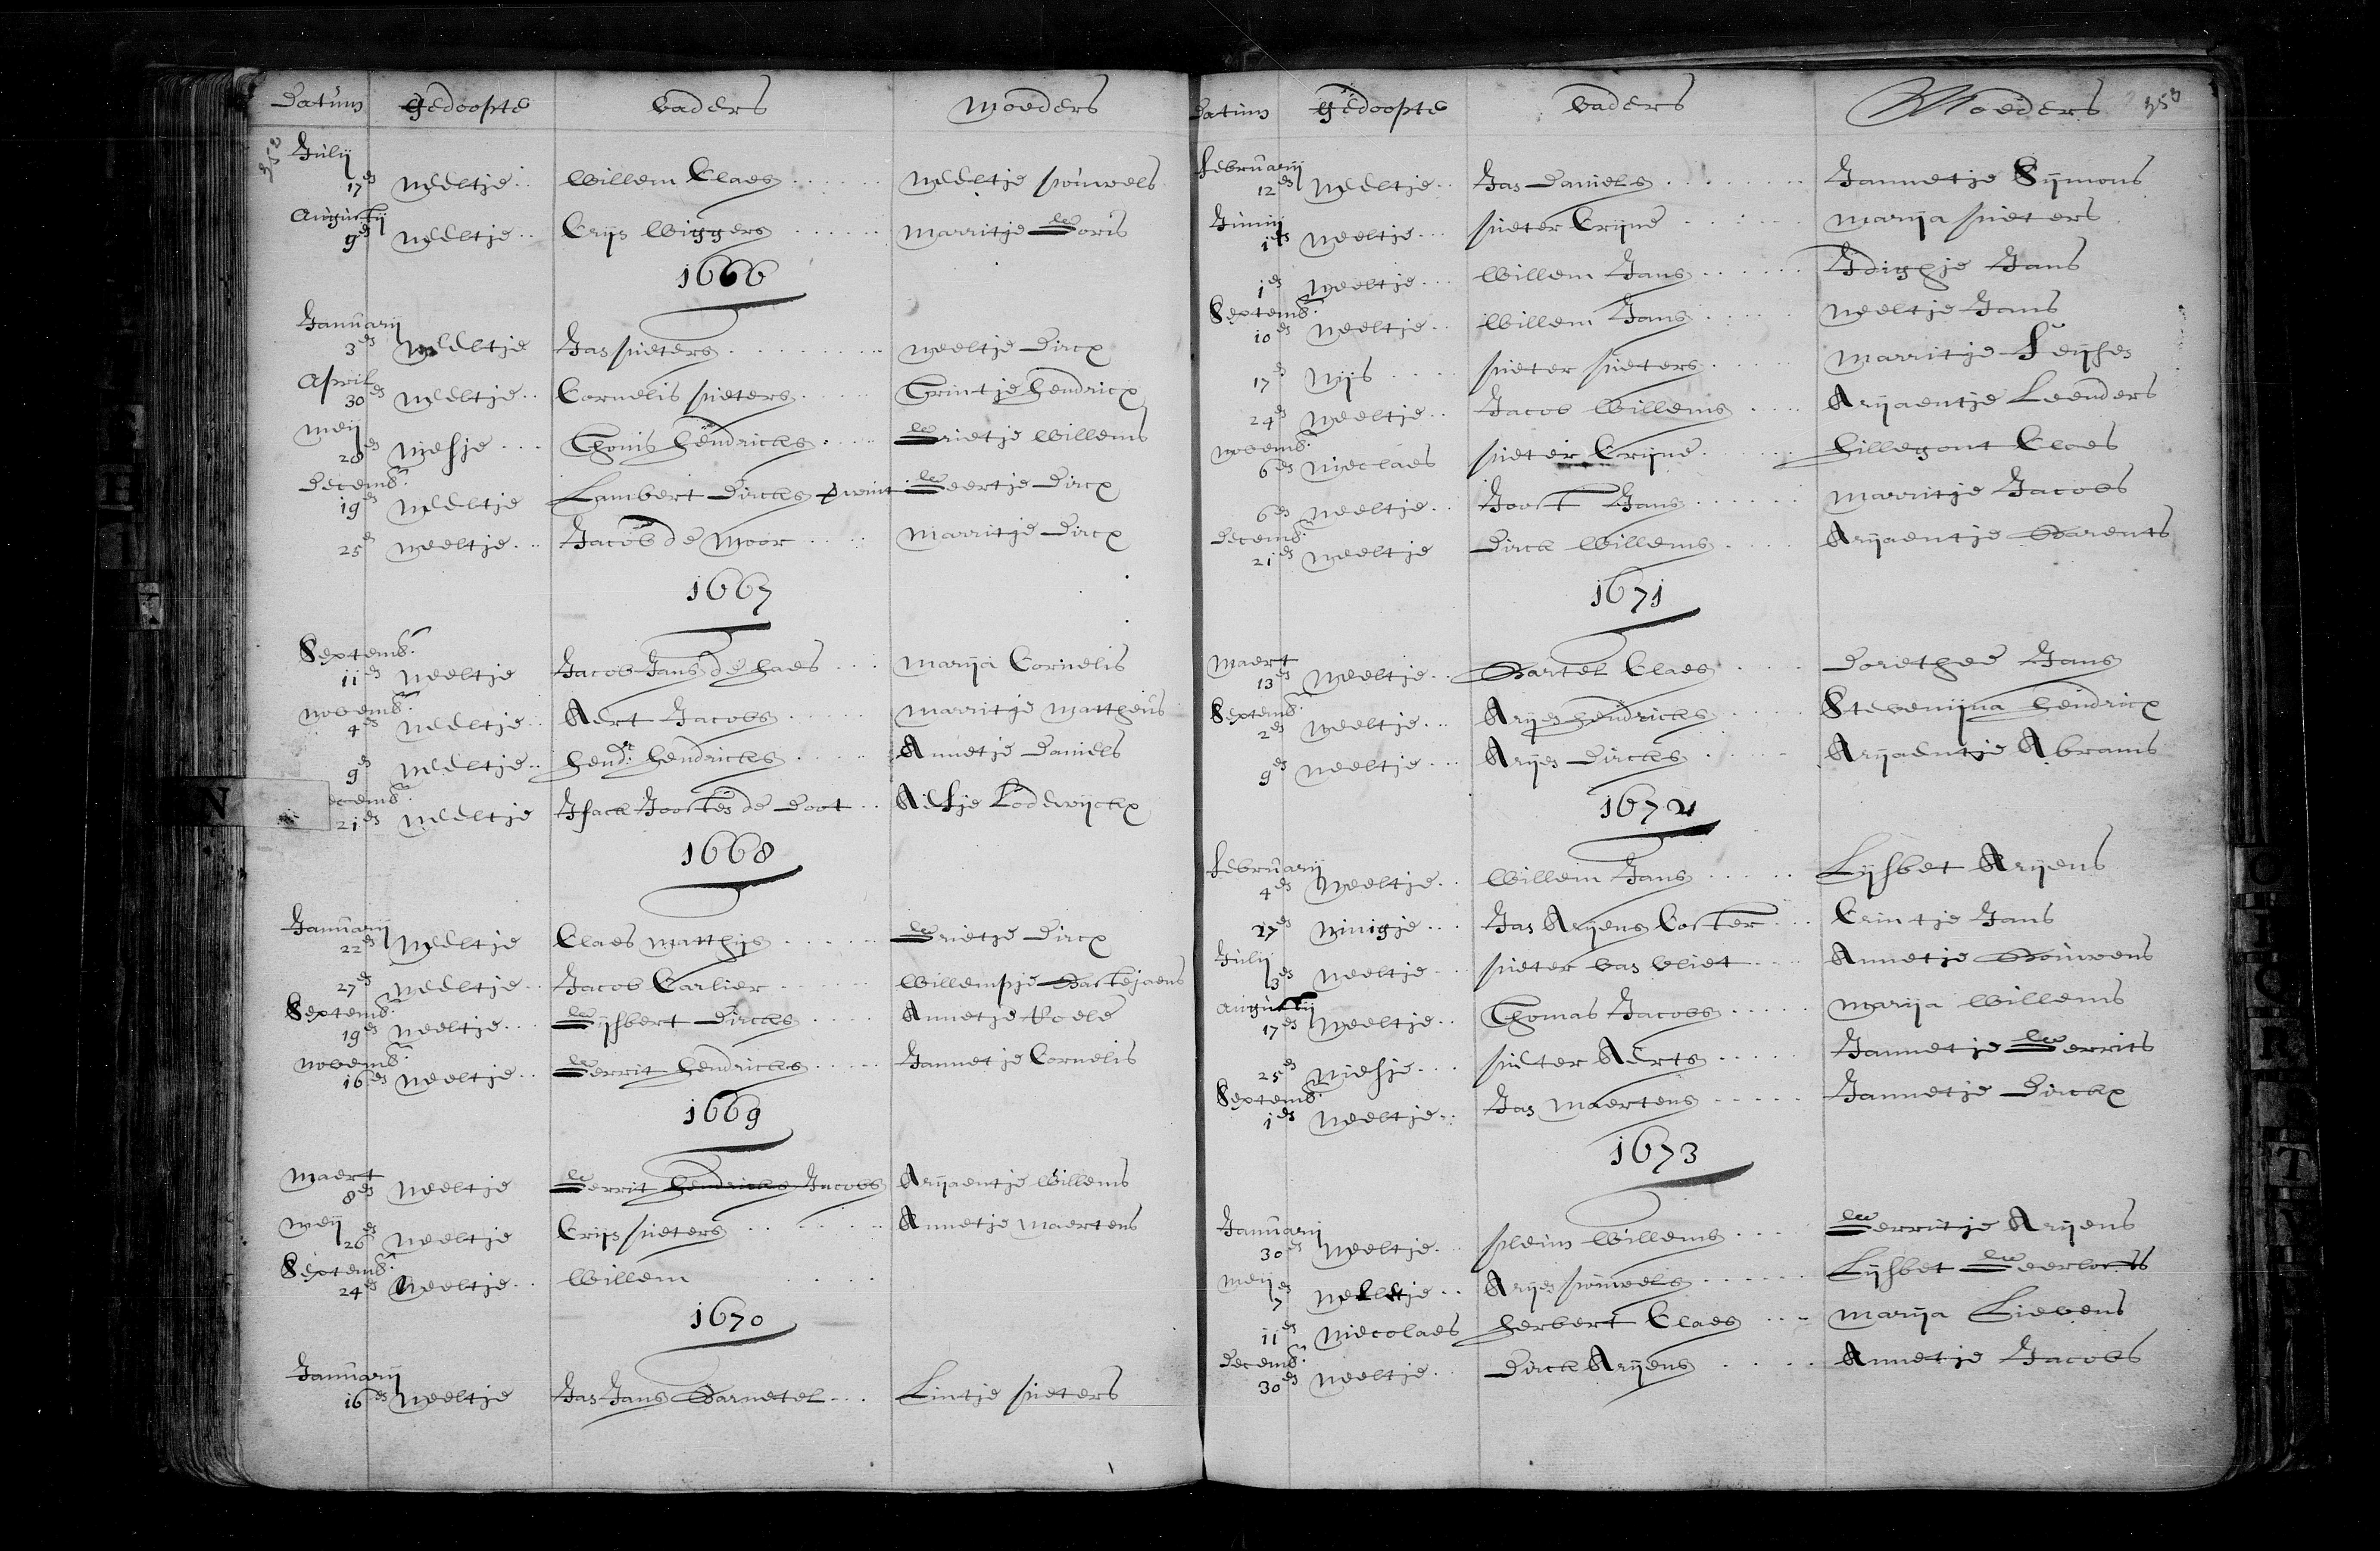 Datum Gedoopte Vaders Moeders
352
Julij
17en Neeltje Willem Claes Neeltje Pouwels
Augustij
9en Neeltje Crijn Wiggers Marritje Goris
1666
Januarij
3en Neeltje Jan Pieters Neeltje Dircx
April
30en Neeltje Cornelis Pieters Trintje Hendricx
Meij
28en Niesje Thonis Hendricks Grietje Willems
Decemb:
19en Neeltje Lambert Dircks Geertje Dircx
25en Neeltje Jacob de Moor Marritje Dircx
1667
Septemb:
11en Neeltje Jacob Jans de Haes Marija Cornelis
Novemb:
4en Neeltje Aert Jacobs Marritje Mattheus
9en Neeltje Hendr: Hendricks Annetje Daniels
ecemb:
21en Neeltje Isack Joosten de Doot Aeltje Lodewijckx
1668
Januarij
22en Neeltje Claes Matthijs Grietje Dircx
27en Neeltje Jacob Carlier Willempje Bastejaens
Septemb:
19en Neeltje Gijsbert Dircks Annetje Roele
Novemb:
16en Neeltje Gerrit Hendricks Jannetje Cornelis
1669
Maert
8en Neeltje Gerrit Hendricks Jacobs Arijaentje Willems
Meij
26en Neeltje Crijn Pieters Annetje Maertens
Septemb:
24en Neeltje Willem
1670
Januarij
16en Neeltje Jan Jans Barnetel Lintje Pieters
Datum Gedoopte Vaders Moeders
353
Februarij
12en Neeltje Jan Daniels Jannetje Sijmons
Junij
1en Neeltje Pieter Crijne Marija Pieters
1en Neeltje Willem Jans Idigje Jans
Septemb:
10en Neeltje Willem Jans Neeltje Jans
17en Nijs Pieter Pieters Marritje Feijses
24en Neeltje Jacob Willems Arijaentje Leenders
Novemb:
6en Nieclaes Pieter Crijne Hillegont Claes
6en Neeltje Joost Jans Marritje Jacobs
Decemb:
21en Neeltje Dirck Willems Arijaentje Barents
1671
Maert
13en Neeltje Bartel Claes Dorethee Jans
Septemb:
2en Neeltje Arijen Hendricks Stevenijna Hendricx
9en Neeltje Arijen Dircks Arijaentje Abrams
1672
Februarij
4en Neeltje Willem Jans Lijsbet Arijens
27en Ninigje Jan Arijens Coster Crintje Jans
Julij
3en Neeltje Pieter van Vliet Annetje Bouwens
Augustij
17en Neeltje Thomas Jacobs Marija Willems
25en Niesje Pieter Aerts Jannetje Gerrits
Septemb:
1en Neeltje Jan Maertens Jannetje Dirckx
1673
Januarij
30en Neeltje Pleun Willems Gerritje Arijens
Meij
7en Neeltje Arijen Pouwels Lijsbet Geerlofs
11en Niecolaes Herbert Claes Marija Lievens
Decemb:
30en Neeltje Dirck Arijens Annetje Jacobs
N